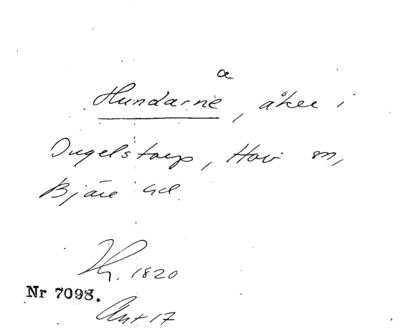 a
Hundarne, åker i
Ingelstorp, Hov sn,
Bjäre hd.
1820
Nr 7098.
Akt 17